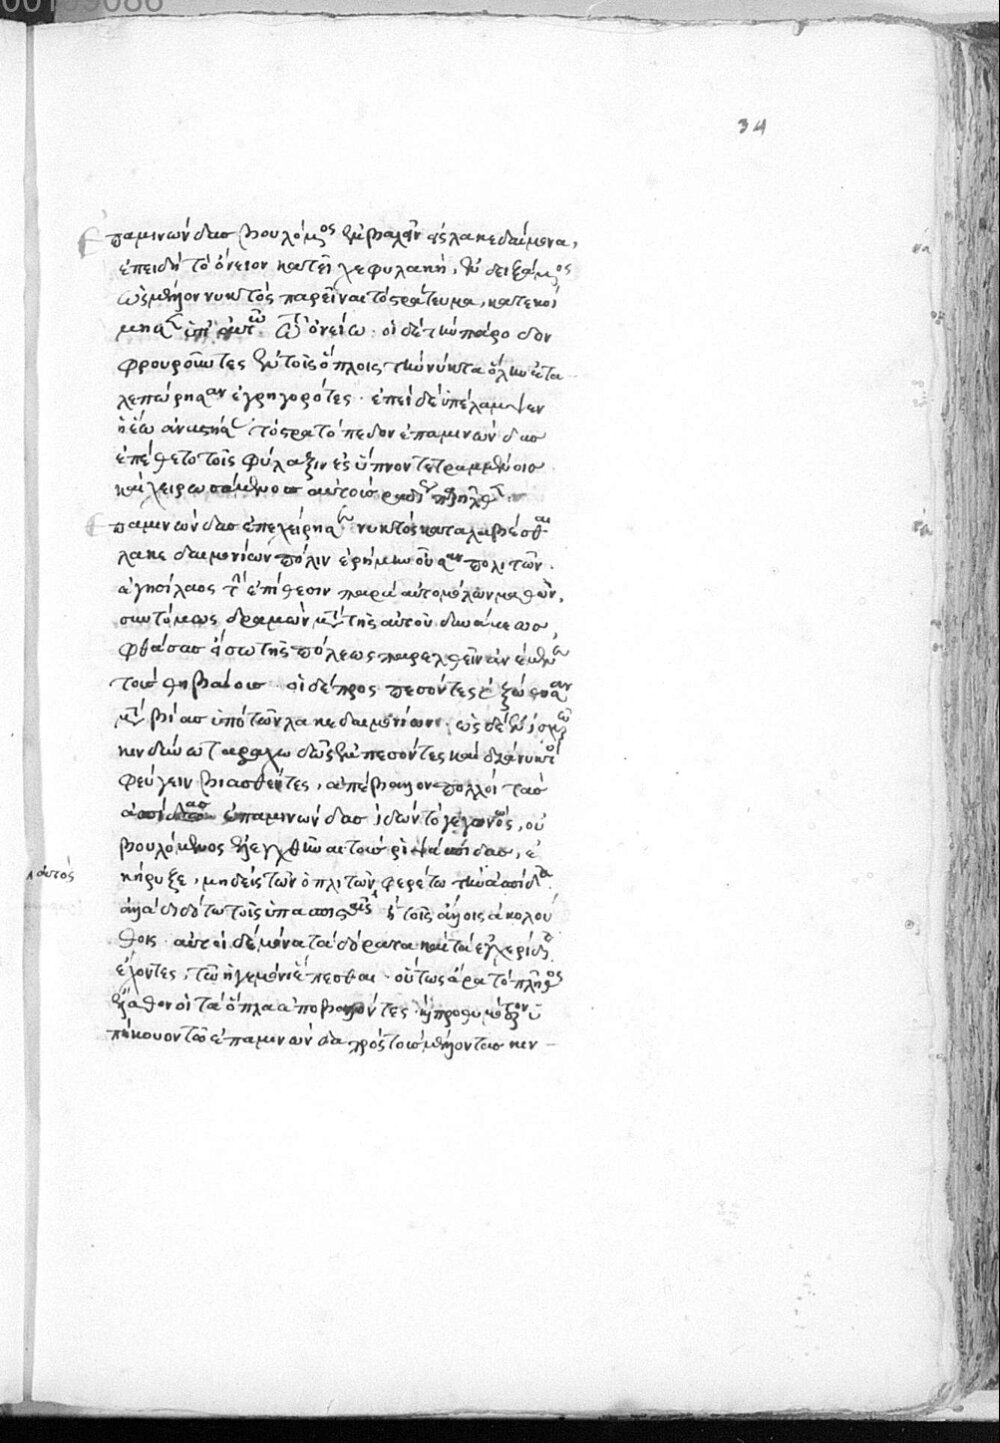 34
Ἐπαμινώνδας βουλόμενος ἐμβαλεῖν εἰς λακεδαίμονα,
ἐπειδὴ τὸ ὄνειον κατείχε φυλακὴ, ἐνδειξάμενος
ὡς μέλλων νυκτὸς παρεῖναι τὸ στράτευμα, κατεκοί
μησεν ὑπ' αὐτῶ τῶ ὀνείω · οἱ δὲ τὴν πάροδον
φρουροῦντες ἐν τοῖς ὅπλοις τὴν νύκτα ὅλην ἐτα
λεπώρησαν ἐγρηγορότες · ἐπεὶ δὲ ὑπέλαμψεν
ἡ ἕω ἀναστήσας τὸ στρατόπεδον ἐπαμινώνδας
ἐπέθετο τοῖς φύλαξιν ἐς ὕπνον τετραμμένοις
καὶ χειρωσάμενος αὐτοὺς ῥαδίως παρῆλθεν
Ἐπαμινώνδας ἐπεχείρησεν νυκτὸς καταλαβέσθαι
λακεδαιμονίων πόλιν ἐρήμην οὖσαν πολιτῶν.
ἀγησίλαος τὴν ἐπίθεσιν παρὰ αὐτομόλων μαθὼν,
συντόμως δραμὼν μετὰ τῆς αὐτοῦ δυνάμεως,
φθάσας εἴσω τῆς πόλεως παρελθεῖν ἀνέμενε
τοὺς θηβαίους · οἱ δὲ προσπεσόντες ἐξώσθησαν
μετὰ βίας ὑπὸ τῶν λακεδαιμονίων · ὡς δὲ ἐν ἰσχυρῶ
κινδύνω ταραχώδως ἐμπεσόντες καὶ διὰ νυκτὸς
φεύγειν βιασθέντες, ἀπέβαλλον πολλοὶ τὰς
ἀσπίδας ἐπαμινώνδας ἰδὼν τὸ γεγονὸς, οὐ
βουλόμενος ἐλεγχθῆναι τοὺς ῥιψάσπιδας, ἐ
κήρυξε, μηδεὶς τῶν ὁπλιτῶν φερέτω τὴν ἀσπίδα
αὐτὸς
ἀλλὰ διδότω τοῖς ὑπασπισταῖς ἢ τοῖς ἄλλοις ἀκολού
θοις · αὐτοὶ δὲ μόνα τὰ δόρατα καὶ τὰ ἐγχειρίδια
ἔχοντες, τῶ ἡγεμόνι ἕπεσθαι · οὕτως ἄρα τὸ πλῆθος
ἔλαθον οἱ τὰ ὅπλα ἀποβαλόντες · καὶ προθυμότερον ὑ
πήκουον τῶ ἐπαμινώνδα πρὸς τοὺς μέλλοντας κιν-